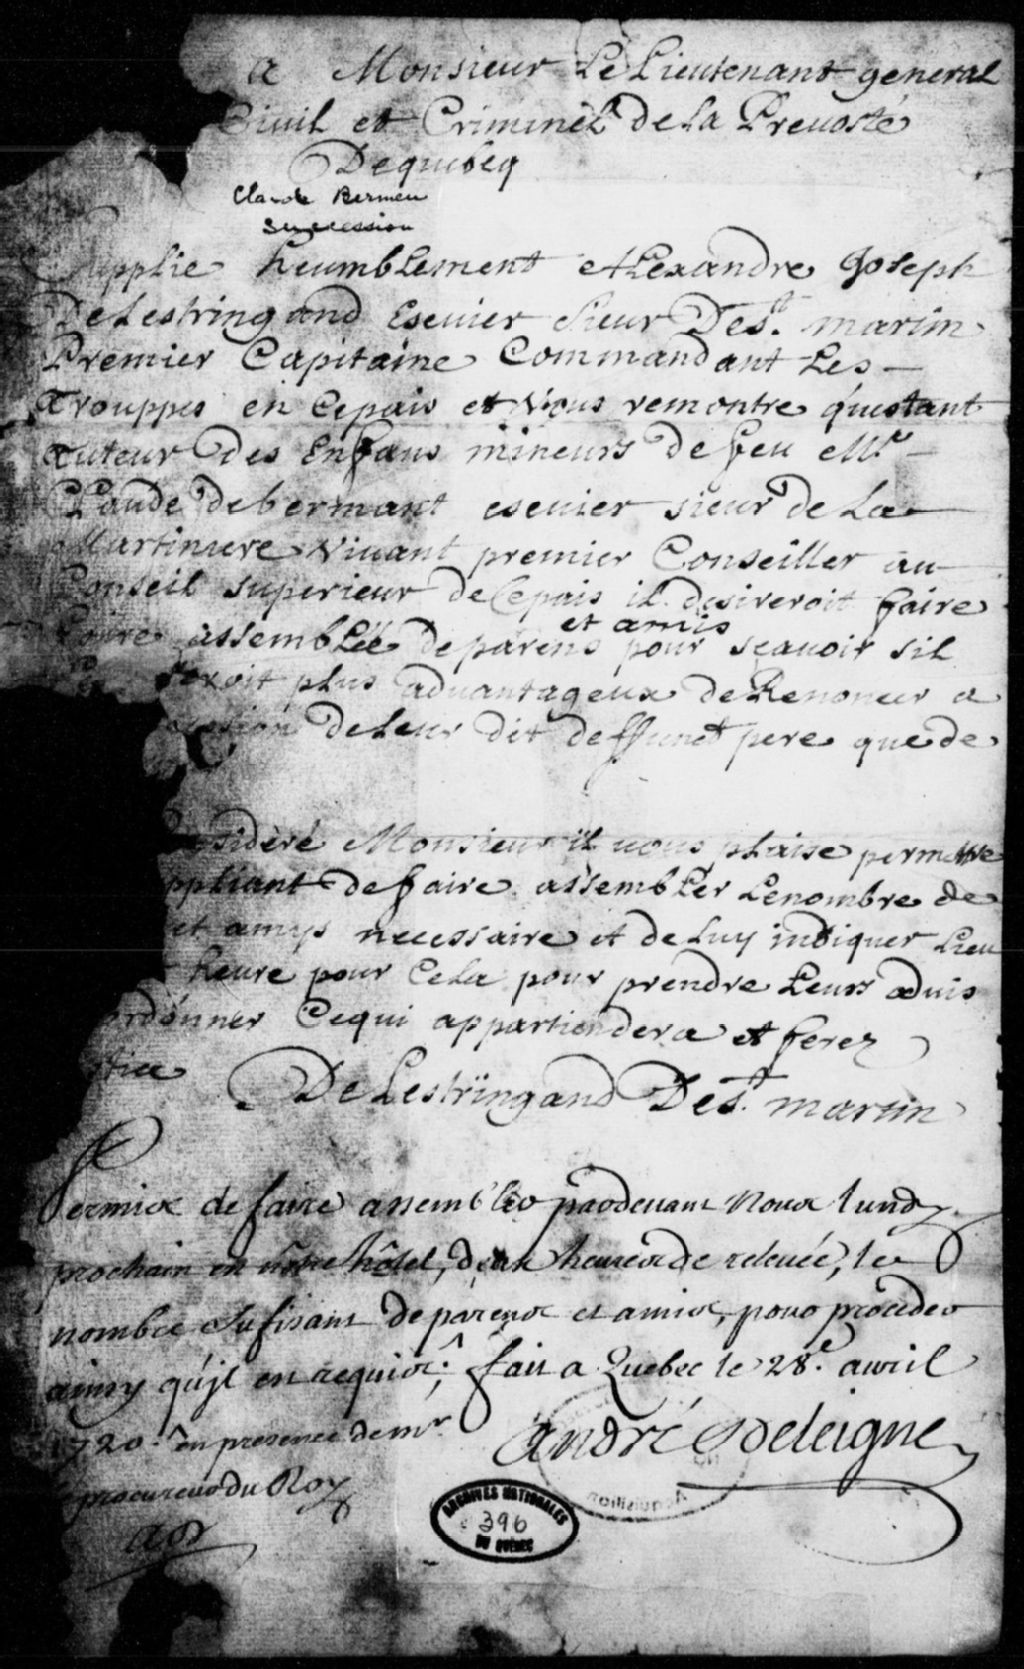 A Monsieur Le Lieutenant general
Ciuil et Criminel de la Preuosté
De quebeq
Claude Bermen
succession
Supplie heumblement Alexandre Joseph
De Lestringand Escuier sieur De St. martin
Premier Capitaine Commandant Les
Trouppes en Cepais et Vous remontre questant
Tuteur Des Enfans mineurs de feu Mr
Claude de bermant escuier sieur de La
Martiniere Viuant premier Conseiller au
Conseil superieur de Cepais il desireroit faire
faire assemblée de parens et amis pour scauoir sil
seroit plus aduantageux de Renoncer a
ession de leur dit deffunct pere que de
sidéré Monsieur il vous plaise permettre
ppliant de faire assembler Le nombre de
et amys necessaire et de luy indiquer Lieu
heure pour Cela pour prendre Leurs aduis
ordonner Cequi appartiendera et ferez
stice
De Lestringand De St. martin
Permis de faire assembler pardevant Nous lundy
prochain en nôtre hôtel, deux heures de relevée, le
nombre sufisant de parens et amis, pour proceder
ainsy qu'jl en requis; fait a Quebec le 28e. avril
1720. en presence de mr.
le procureur du Roy
André Deleigne
ADL
ARCHIVES NATIONALES
c 396
DU QUÉBEC